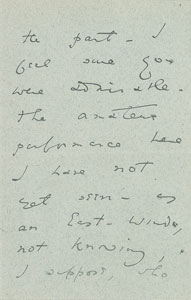 the part - I
feel sure you
were admirable.
The amateur
performance here
I have not
yet seen - as
an East-Winds,
not knowing,
I support, who